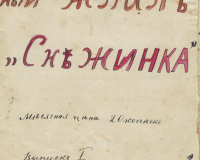 ный журналъ
„Снѣжинка"
Мѣсячная цѣна 20 копѣекъ
Выпускъ I